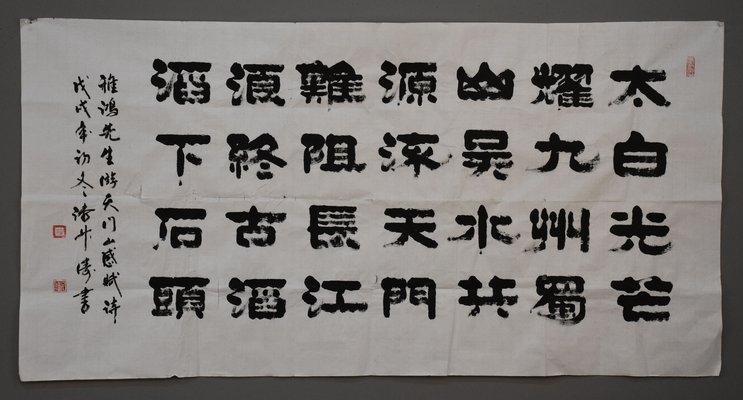 太白光芒
耀九州蜀
山吴水共
源流天門
難阻長江
須終古滔
滔下石頭
雅鴻先生游天门山感賦诗
戊戌年初冬 書